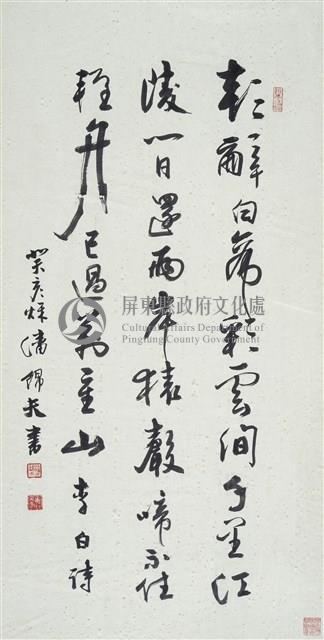 朝辭白帝彩雲間千里江
陵一日還兩岸猿聲啼不住
輕舟已過萬重山 李白詩
癸亥秋潘錦夫書
屏東縣政府文化處
Cultural Affairs Department of
Pingtung County Government